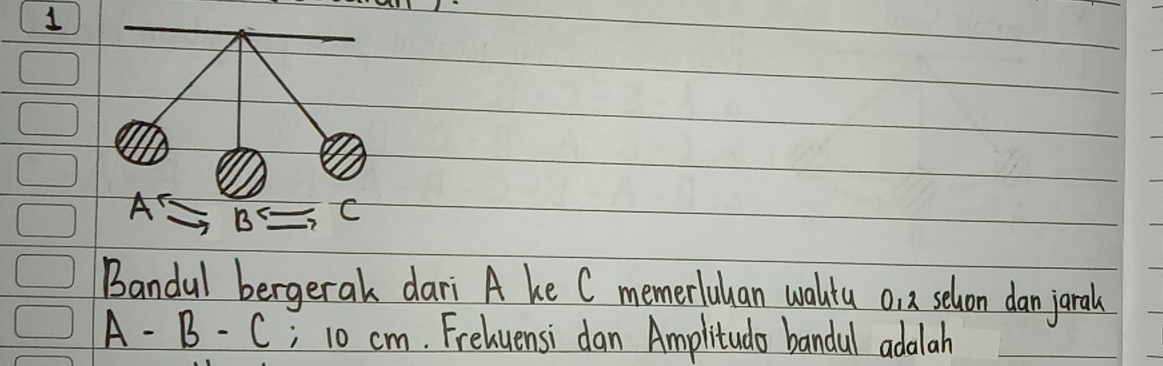 1
A B C
Bandul bergerak dari A ke C memerlukan waktu 0,2 sekon dan jarak
A - B - C ; 10 cm. Frekuensi dan Amplitudo bandul adalah